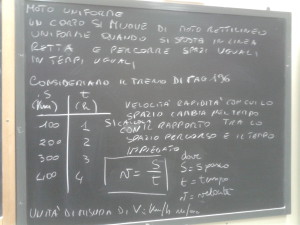 MOTO UNIFORME
UN CORPO SI MUOVE DI MOTO RETTILINEO
UNIFORME QUANDO SI SPOSTA IN LINEA
RETTA E PERCORRE SPAZI UGUALI
IN TEMPI UGUALI
CONSIDERIAMO IL TRENO DI PAG 196
S t
(Km) (h)
100 1
200 2
300 3
400 4
VELOCITÀ RAPIDITÀ CON CUI LO
SPAZIO CAMBIA NEL TEMPO
SI CALCOLA CON IL RAPPORTO TRA LO
SPAZIO PERCORSO E IL TEMPO
IMPIEGATO
v = S/t
dove
S = Spazio
t = tempo
v = velocità
UNITÀ DI MISURA DI V: Km/h m/s